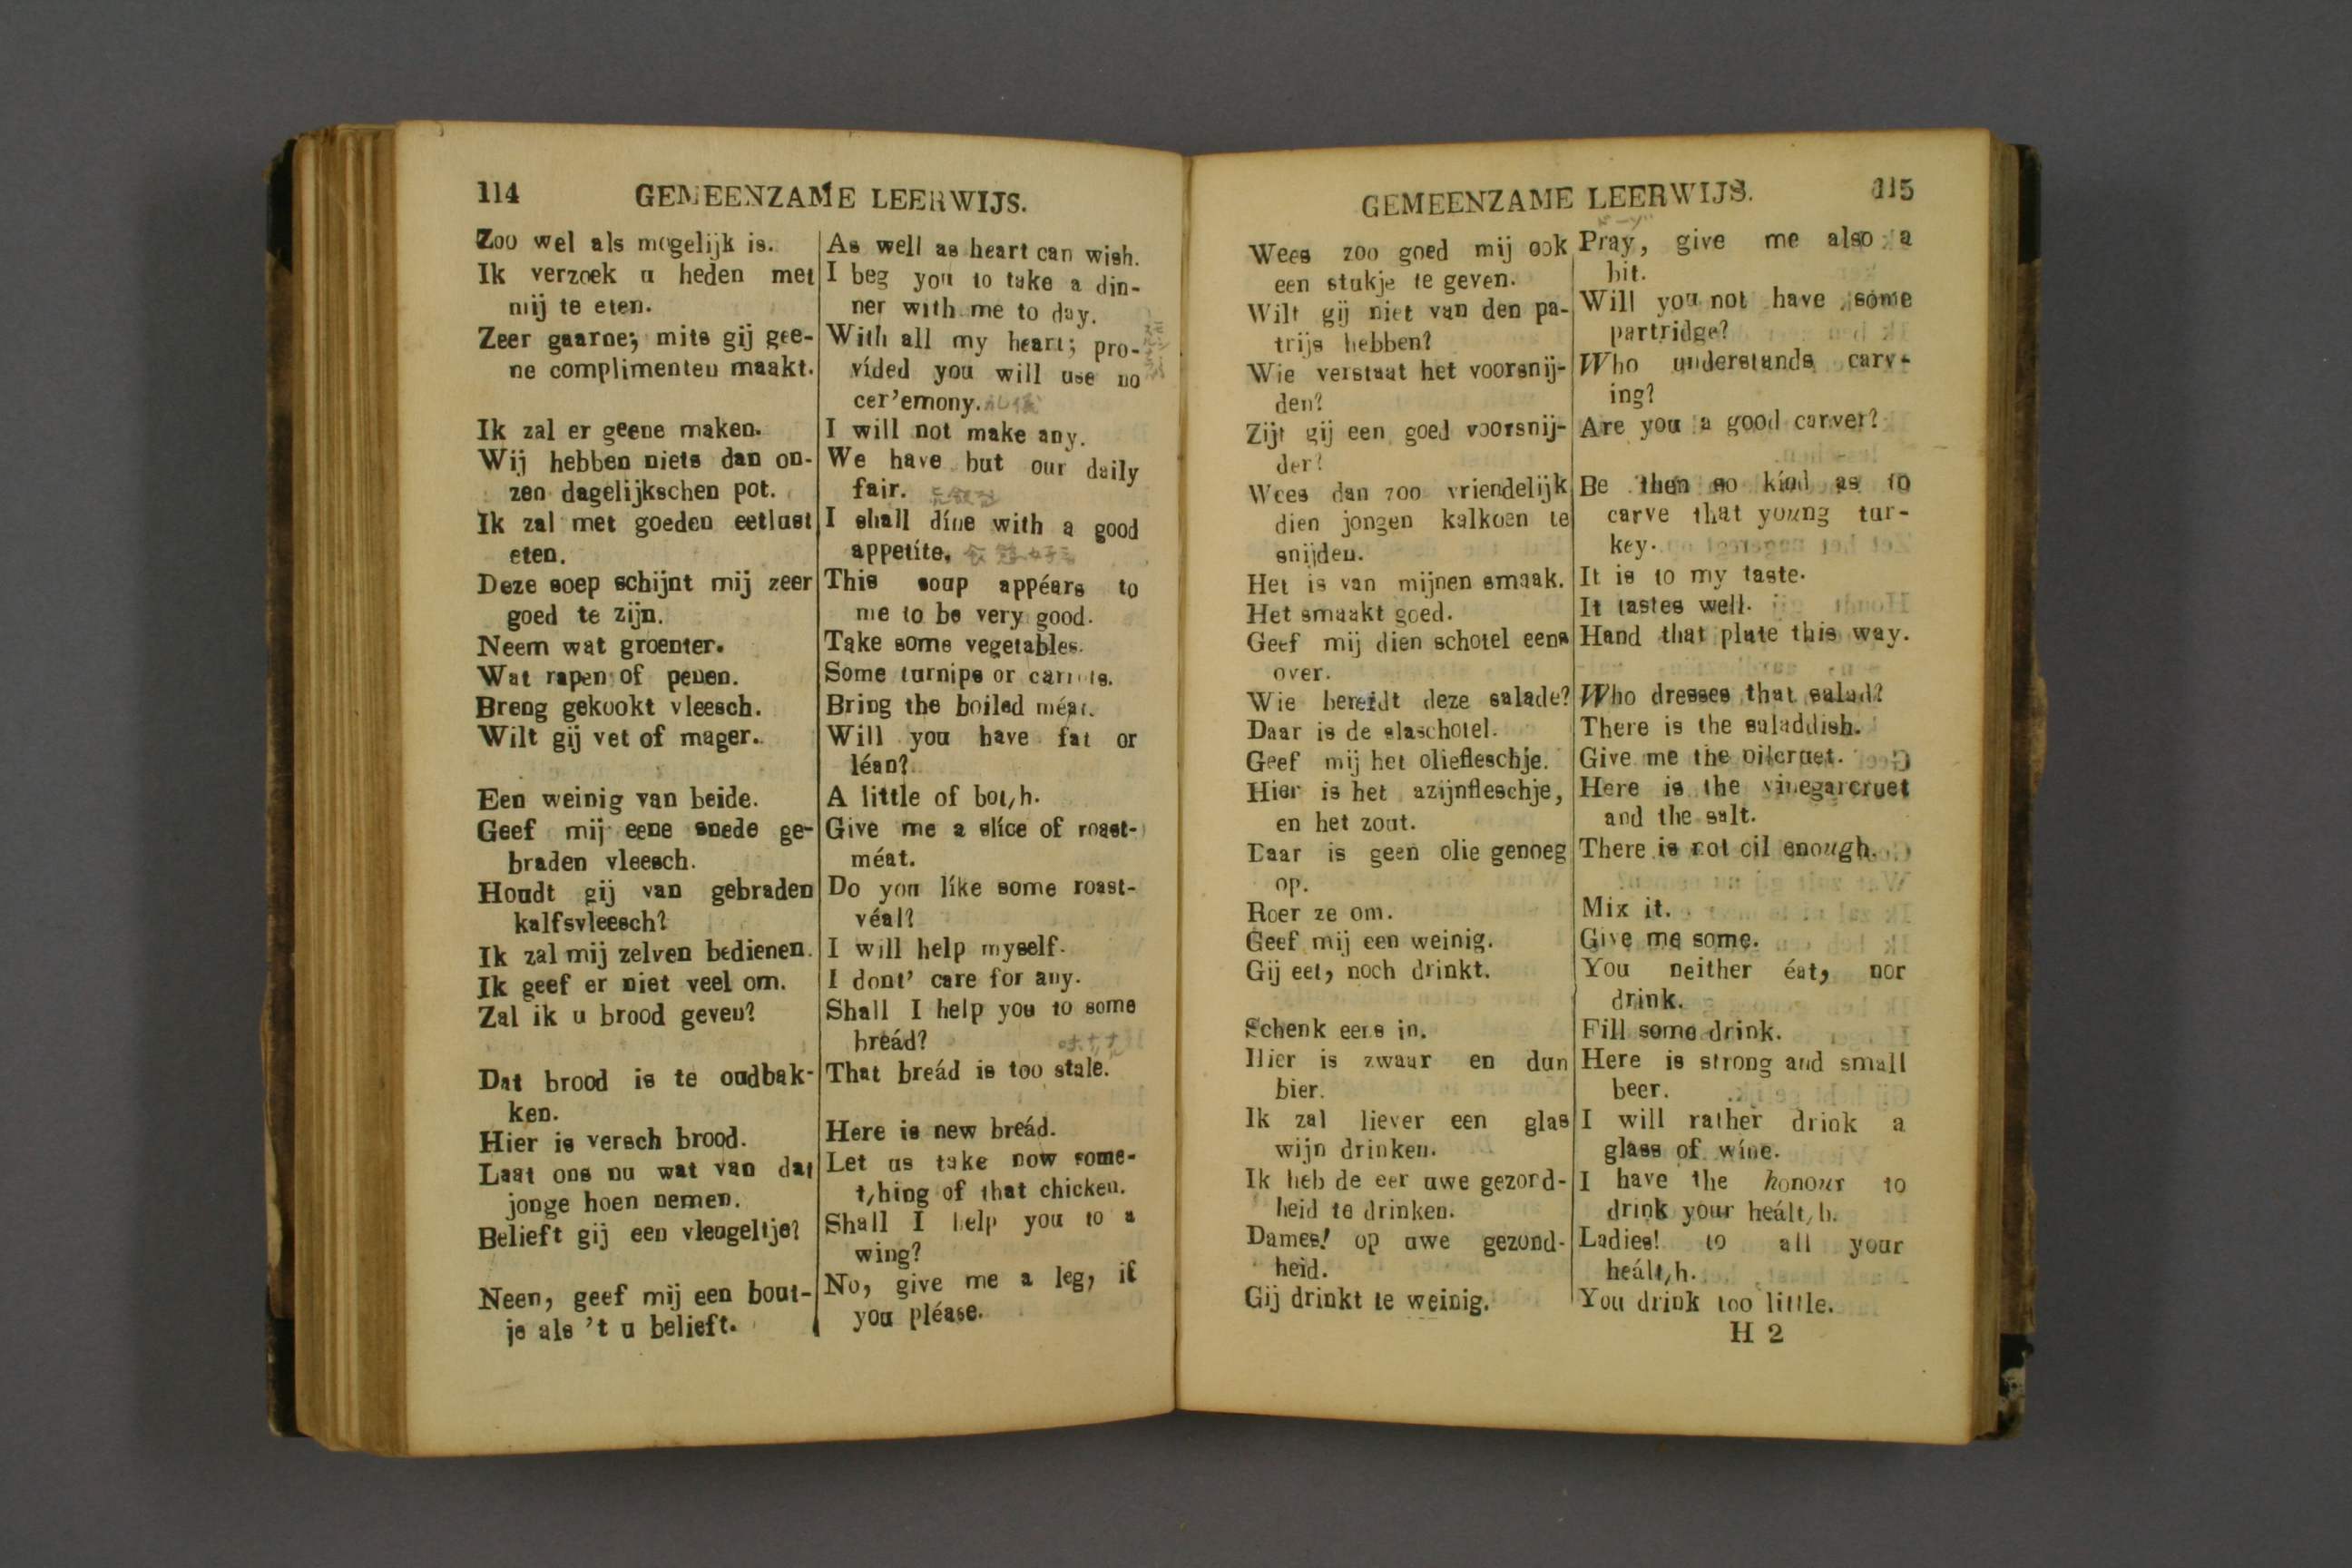 114 GEMEENZAME LEERWIJS.
Zoo wel als mogelijk is.
Ik verzoek u heden met
mij te eten.
Zeer gaarne; mits gij gee-
ne complimenten maakt.
Ik zal er geene maken.
Wij hebben niets dan on-
zen dagelijkschen pot.
Ik zal met goeden eetlust
eten.
Deze soep schijnt mij zeer
goed te zijn.
Neem wat groenter.
Wat rapen of penen.
Breng gekookt vleesch.
Wilt gij vet of mager.
Een weinig van beide.
Geef mij eene snede ge-
braden vleesch.
Houdt gij van gebraden
kalfsvleesch?
Ik zal mij zelven bedienen.
Ik geef er niet veel om.
Zal ik u brood geven?
Dat brood is te oudbak-
ken.
Hier is versch brood.
Laat ons nu wat van dat
jonge hoen nemen.
Belieft gij een vleugeltje?
Neen, geef mij een bout-
je als 't u belieft.
As well as heart can wish.
I beg you to take a din-
ner with me to day.
With all my heart; pro-
víded you will use no
cer'emony. 礼儀
I will not make any.
We have but our daily
fair.
I shall díne with a good
appetíte.
This soup appéars to
me to be very good.
Take some vegetables.
Some turnips or carrots.
Bring the boiled méat.
Will you have fat or
léan?
A little of bot,h.
Give me a slíce of roast-
méat.
Do you líke some roast-
véal?
I will help myself.
I dont' care for any.
Shall I help you to some
breád?
That breád is too stale.
Here is new breád.
Let us take now some-
t,hing of that chicken.
Shall I help you to a
wing?
No, give me a leg, if
you pléase.
GEMEENZAME LEERWIJS. 115
Wees zoo goed mij ook
een stukje te geven.
Wilt gij niet van den pa-
trijs hebben?
Wie verstaat het voorsnij-
den?
Zijt gij een goed voorsnij-
der?
Wees dan zoo vriendelijk
dien jongen kalkoen te
snijden.
Het is van mijnen smaak.
Het smaakt goed.
Geef mij dien schotel eens
over.
Wie bereidt deze salade?
Daar is de slaschotel.
Geef mij het oliefleschje.
Hier is het azijnfleschje,
en het zout.
Daar is geen olie genoeg
op.
Roer ze om.
Geef mij een weinig.
Gij eet, noch drinkt.
Schenk eens in.
Hier is zwaar en dun
bier.
Ik zal liever een glas
wijn drinken.
Ik heb de eer uwe gezond-
heid te drinken.
Dames! op uwe gezond-
heid.
Gij drinkt te weinig.
Pray, give me also a
bit.
Will you not have some
partridge?
Who understands carv-
ing?
Are you a good carver?
Be then so kínd as to
carve that young tur-
key.
It is to my taste.
It tastes well.
Hand that plate this way.
Who dresses that salad?
There is the saladdish.
Give me the oilcruet.
Here is the vinegarcruet
and the salt.
There is not oil enough.
Mix it.
Give me some.
You neither éat, nor
drink.
Fill some drink.
Here is strong and small
beer.
I will rather drink a
glass of wíne.
I have the honour to
drink your heált,h.
Ladies! to all your
heált,h.
You drink too little.
H 2